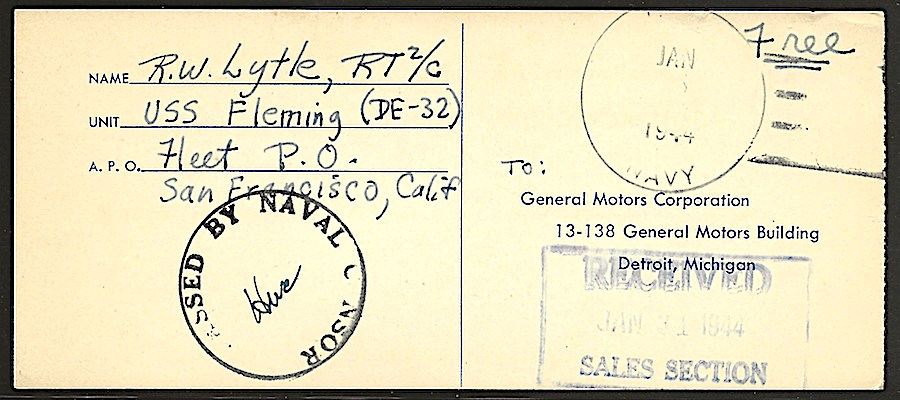 NAME R.W. Lytle, RT 2/c
UNIT USS Fleming (DE-32)
A. P. O. Fleet P.O.
San Francisco, Calif
PASSED BY NAVAL CENSOR
Free
JAN
1944
NAVY
TO:
General Motors Corporation
13-138 General Motors Building
Detroit, Michigan
RECEIVED
JAN 31 1944
SALES SECTION